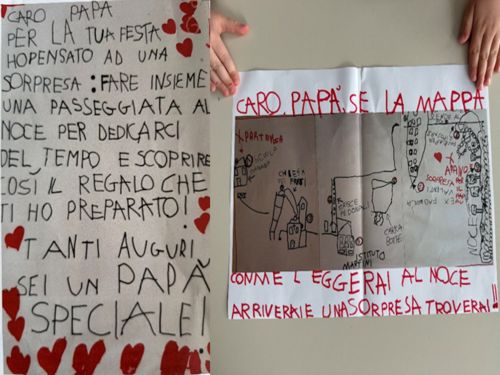 CARO PAPA
PER LA TUA FESTA
HOPENSATO AD UNA
SORPRESA : FARE INSIEME
UNA PASSEGGIATA AL
NOCE PER DEDICARCI
DEL TEMPO E SCOPRIRE
COSÌ IL REGALO CHE
TI HO PREPARATO!
TANTI AUGURI
SEI UN PAPÀ
SPECIALE!
CARO, PAPÀ, SE LA MAPPA
SCUOLA
CHIESA
DEI FRATI
ISTITUTO
MARTINI
ARRIVO
SORPRESA
NOCE
CONME L EGGERAI AL NOCE
ARRIVERAIE UNASORPRESA TROVERAI!!